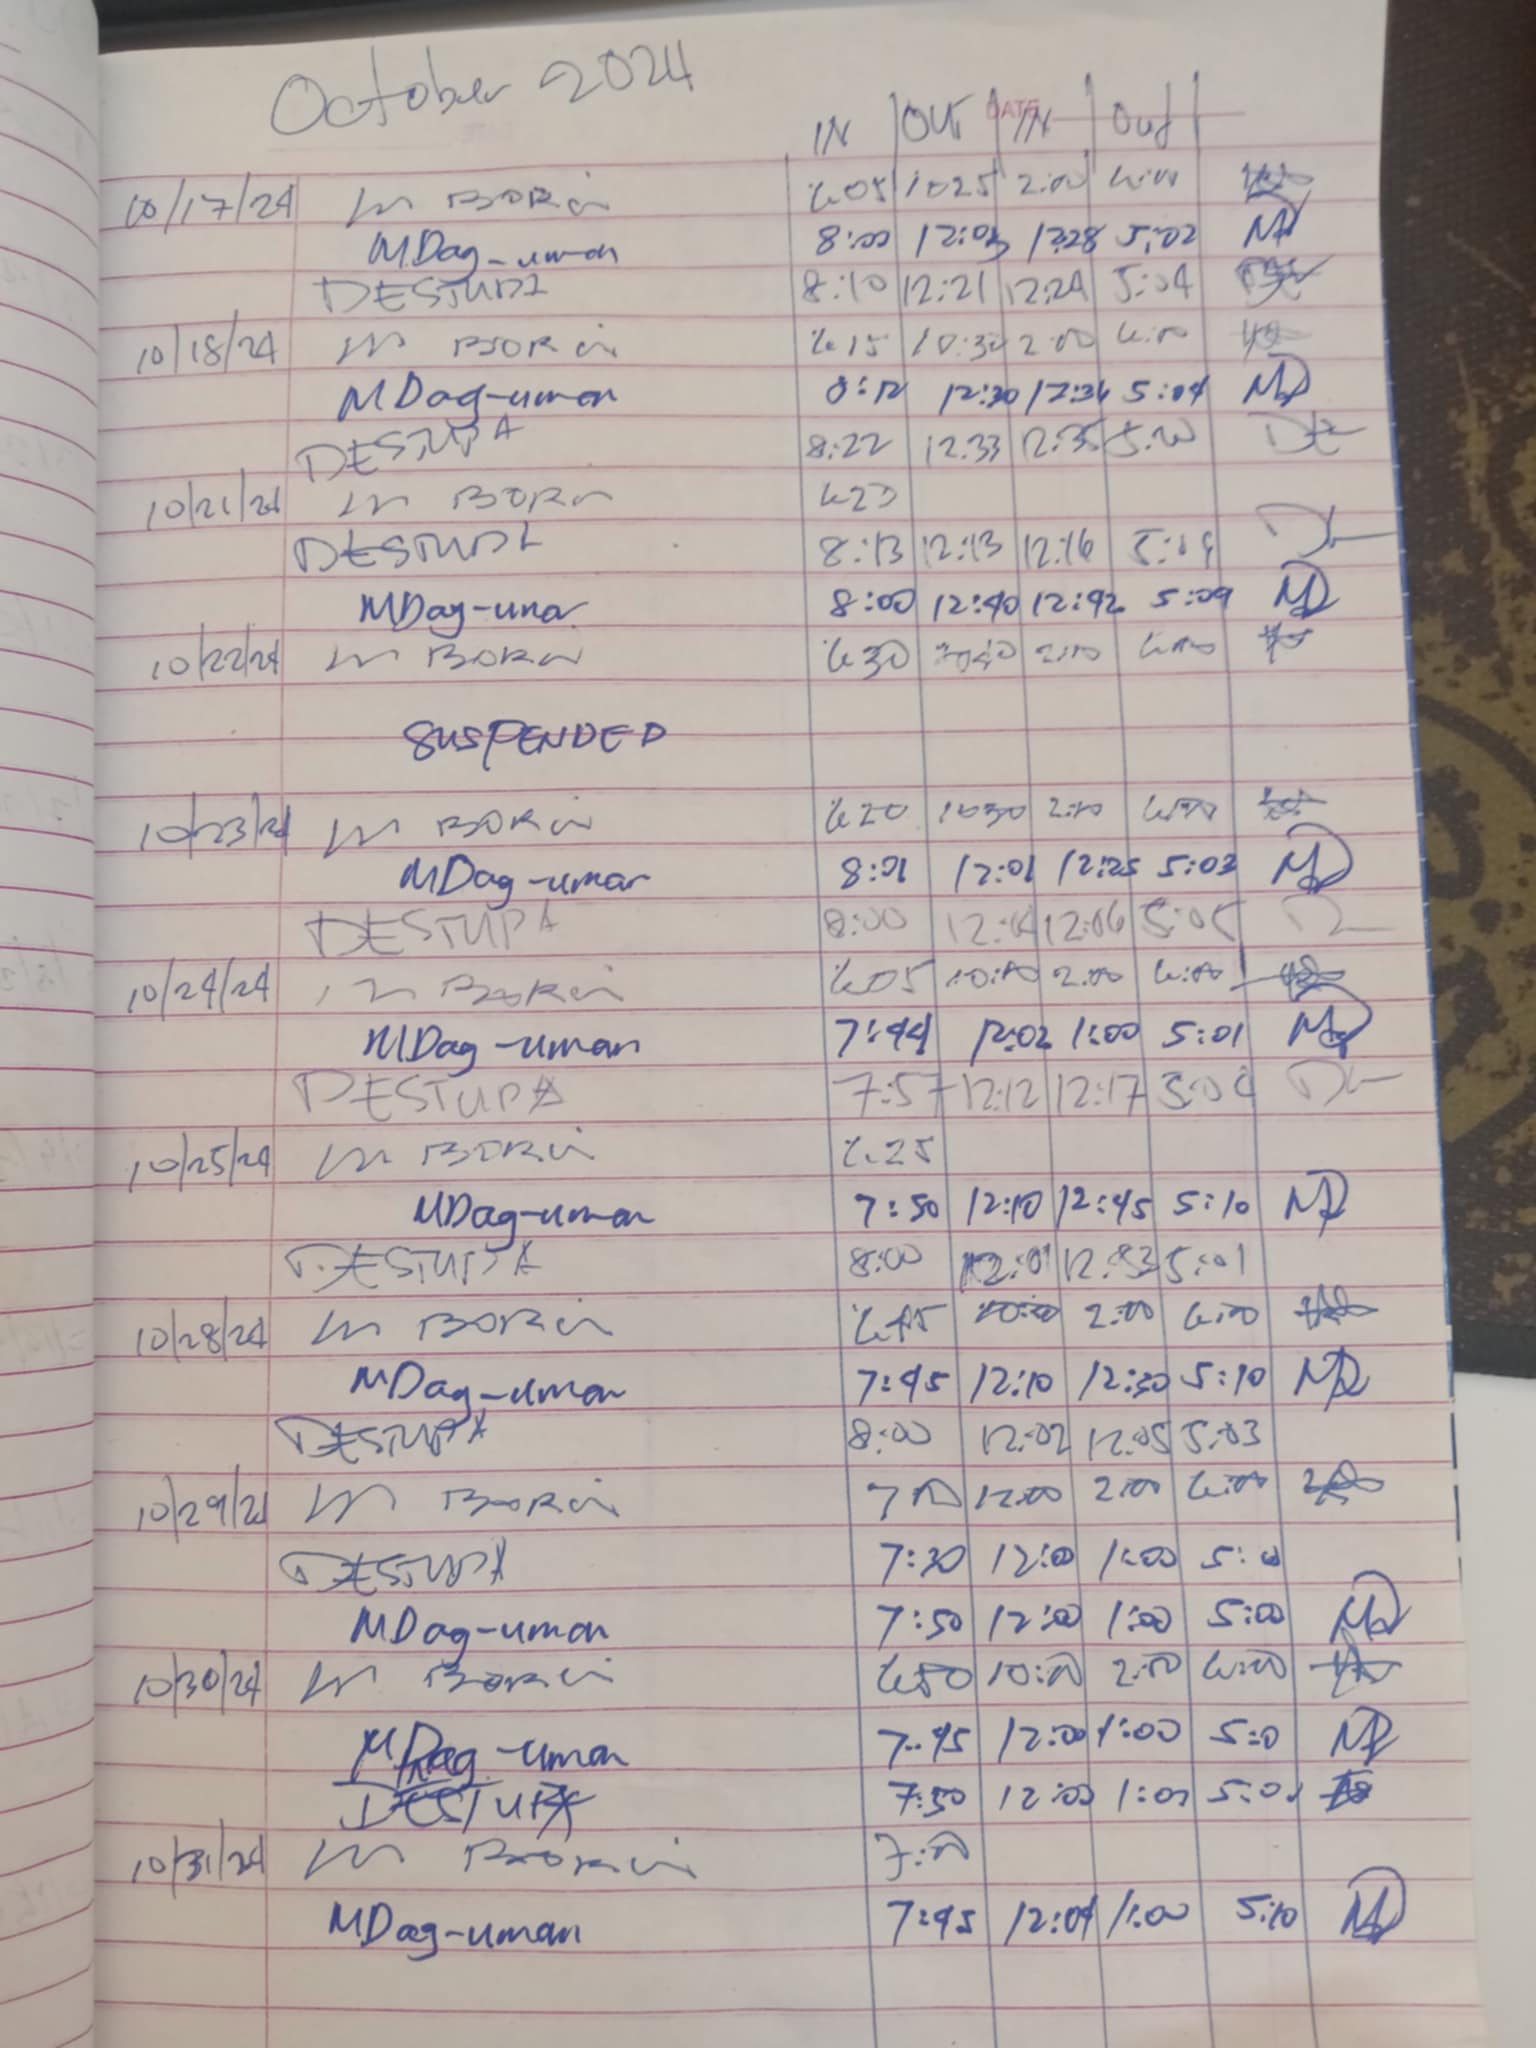 October 2024
DATE
IN OUT IN Out
10/17/24 M BORCi 6:05 10:25 2:00 6:00
MDag-uman 8:00 12:03 12:28 5:02 MD
DESTUPA 8:10 12:21 12:24 5:04
10/18/24 M BORCi 6:15 10:30 2:00 6:00
MDag-uman 8:12 12:30 12:36 5:04 MD
DESTUPA 8:22 12:33 12:35 5:00
10/21/24 M BORCi 6:23
DESTUPA 8:13 12:13 12:16 5:09
MDag-uman 8:00 12:40 12:42 5:09 MD
10/22/24 M BORCi 6:30 2:00 6:00
SUSPENDED
10/23/24 M BORCi 6:20 10:30 2:00 6:00
MDag-uman 8:01 12:01 12:25 5:03 MD
DESTUPA 8:00 12:04 12:06 5:05
10/24/24 M BORCi 6:05 10:00 2:00 6:00
MDag-uman 7:44 12:02 1:00 5:01 MD
DESTUPA 7:57 12:12 12:17 5:04
10/25/24 M BORCi 6:25
MDag-uman 7:50 12:10 12:45 5:10 MD
DESTUPA 8:00 12:01 5:01
10/28/24 M BORCi 6:45 10:30 2:00 6:00
MDag-uman 7:45 12:10 12:30 5:10 MD
DESTUPA 8:00 12:02 12:05 5:03
10/29/24 M BORCi 7:00 12:00 2:00 6:00
DESTUPA 7:30 12:00 1:00 5:00
MDag-uman 7:50 12:00 1:00 5:00 MD
10/30/24 M BORCi 6:50 10:00 2:00 6:00
MDag-uman 7:45 12:00 1:00 5:0 MD
DESTUPA 7:50 12:00 1:00 5:01
10/31/24 M BORCi 7:00
MDag-uman 7:45 12:04 1:00 5:10 MD